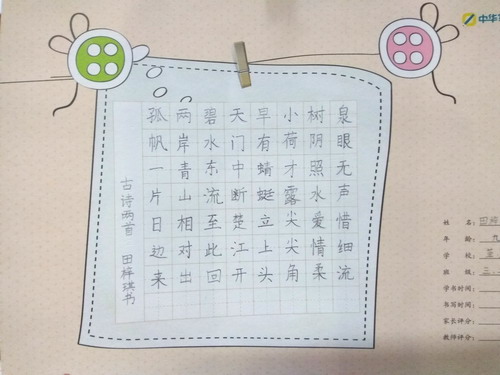 泉眼无声惜细流
树阴照水爱情柔
小荷才露尖尖角
早有蜻蜓立上头
天门中断楚江开
碧水东流至此回
两岸青山相对出
孤帆一片日边来
古诗两首 田梓琪书
中华
姓 名: 田梓
年 龄:
学 校:
班 级: 三
学书时间:
书写时间:
家长评分:
教师评分: